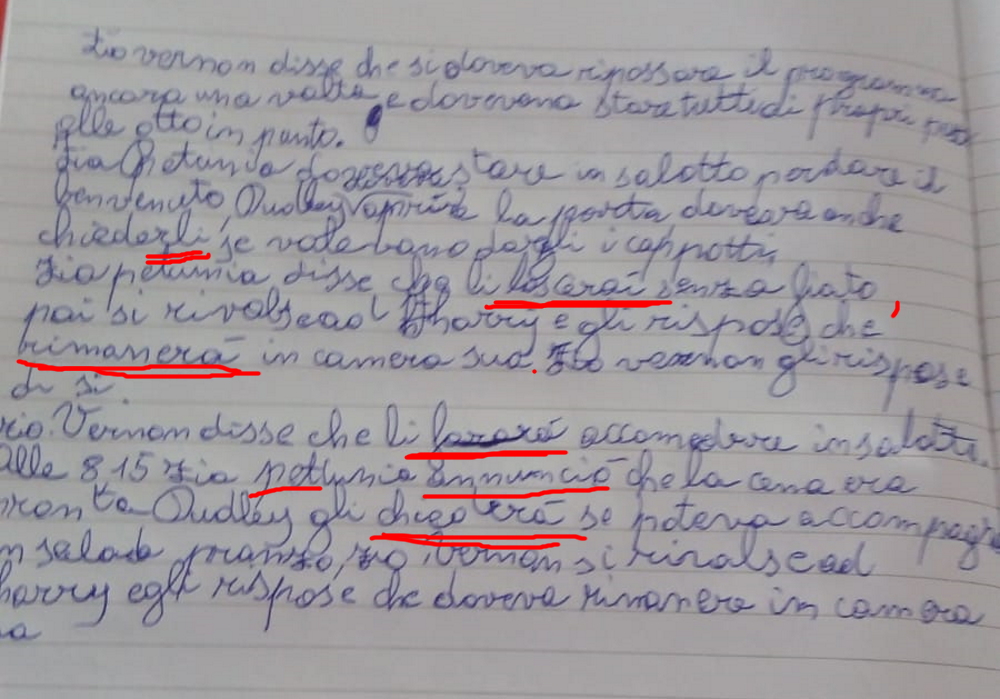 zio vernon disse che si doveva ripossare il programma
ancora una volta e dovevano stare tutti di propri
alle otto in punto.
zia Petunia stare in salotto per dare il
benvenuto, Dudley aprire la porta doveva anche
chiederli, se volevano dargli i cappotti,
zia petunia disse che li lascerai senza fiato,
poi si rivolse ad harry e gli rispose che
rimanerà in camera sua. zio vernon gli rispose
di si
zio Vernon disse che li farará accomodare in salotti.
alle 8 15 zia petunia annunciò che la cena era
pronta Dudley gli chiederà se poteva
in sala da pranzo, zio vernon si rivolse ad
harry e gli rispose che doveva rimanere in camera